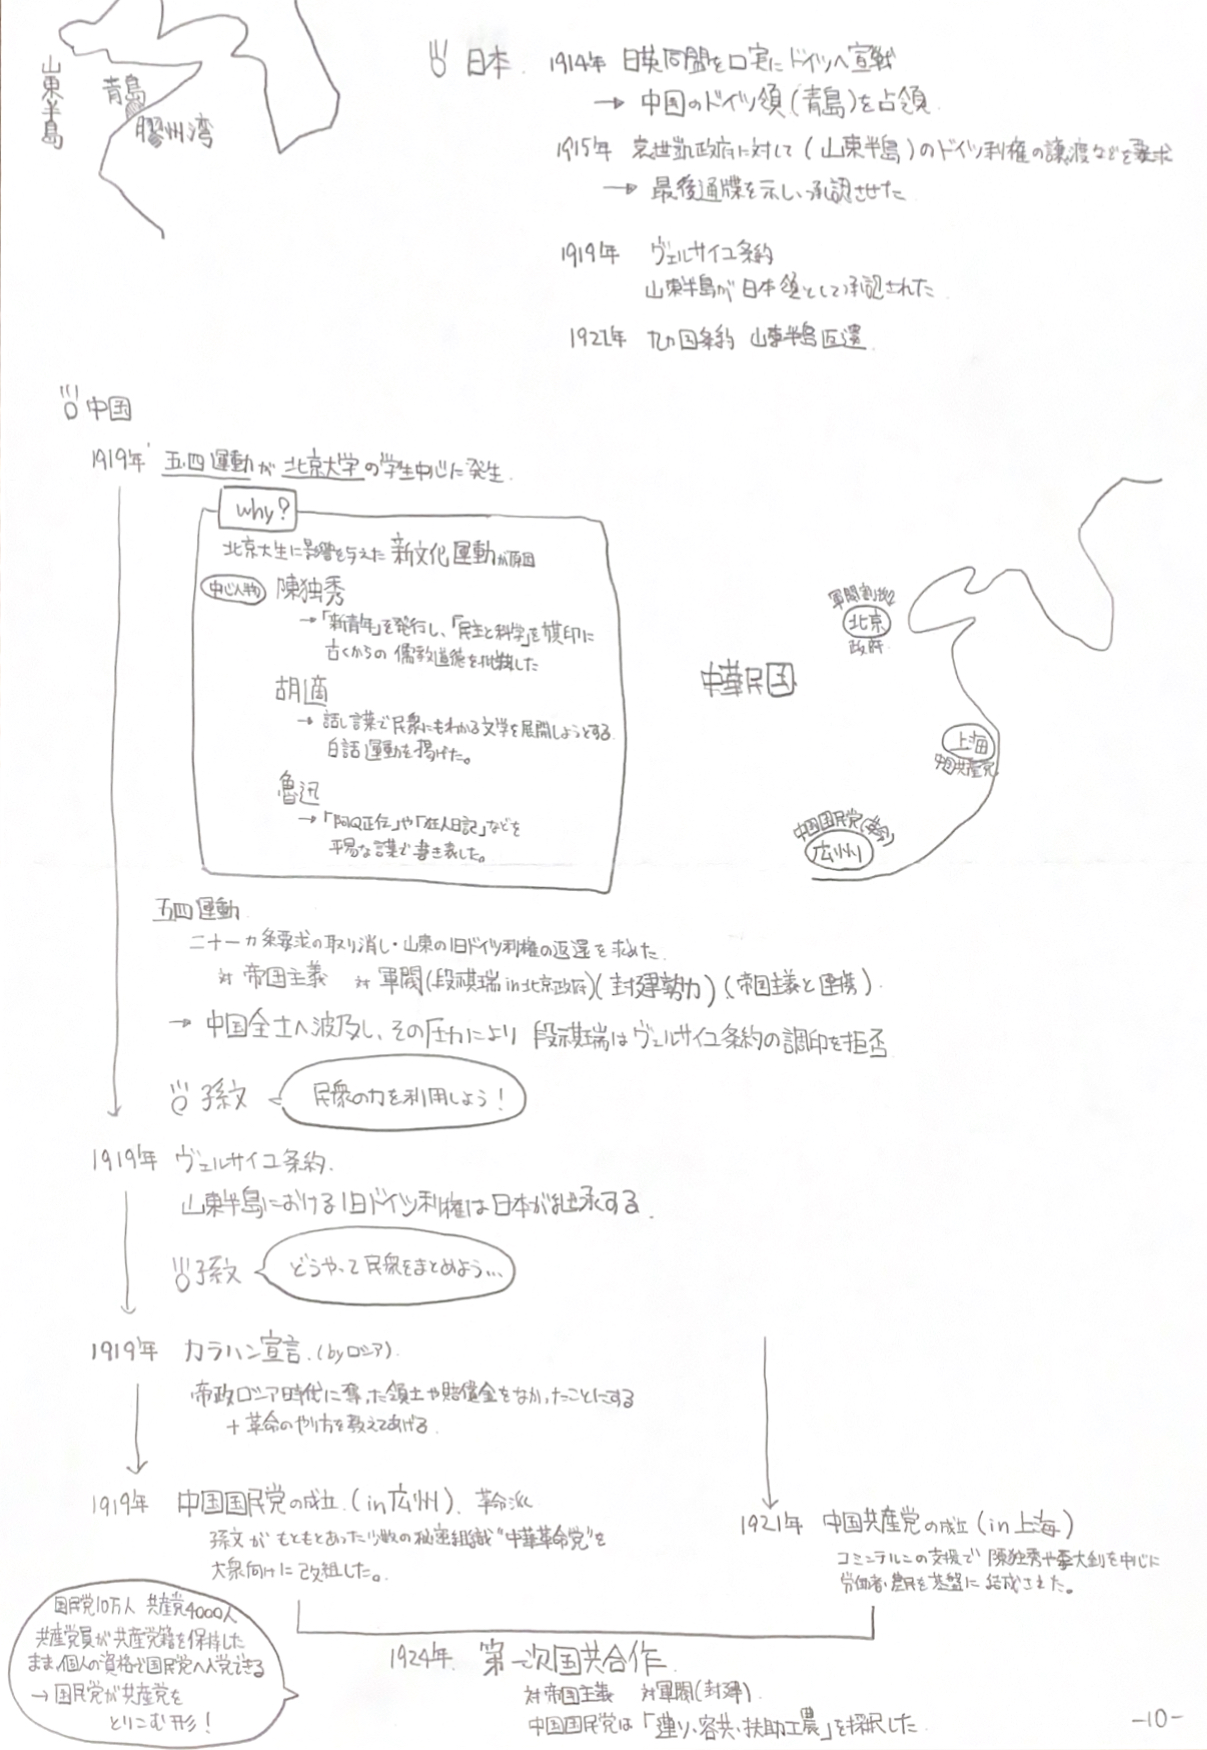 山東半島
青島
膠州湾
日本 1914年 日英同盟を口実にドイツへ宣戦
→ 中国のドイツ領(青島)を占領
1915年 袁世凱政府に対して(山東半島)のドイツ利権の譲渡などを要求
→ 最後通牒を示し、承認させた
1919年 ヴェルサイユ条約
山東半島が日本領として承認された
1922年 九カ国条約 山東半島返還
中国
1919年 五四運動が北京大学の学生中心に発生
why?
北京大生に影響を与えた新文化運動が原因
中心人物 陳独秀
→「新青年」を発行し、「民主と科学」を旗印に
古くからの儒教道徳を批判した
胡適
→ 話し言葉で民衆にもわかる文学を展開しようとする
白話運動を掲げた。
魯迅
→「阿Q正伝」や「狂人日記」などを
平易な言葉で書き表した。
軍閥割拠
北京
政府
中華民国
上海
中国共産党
中国国民党(革命)
広州
五四運動
二十一カ条要求の取り消し・山東の旧ドイツ利権の返還を求めた
対 帝国主義 対 軍閥(段祺瑞in北京政府)(封建勢力)(帝国主義と連携)
→ 中国全土へ波及し、その圧力により 段祺瑞はヴェルサイユ条約の調印を拒否
孫文 民衆の力を利用しよう!
1919年 ヴェルサイユ条約
山東半島における旧ドイツ利権は日本が継承する
孫文 どうやって民衆をまとめよう...
1919年 カラハン宣言.(byロシア)
帝政ロシア時代に奪った領土や賠償金をなかったことにする
+ 革命のやり方を教えてあげる
1919年 中国国民党の成立.(in広州). 革命派
孫文がもともとあった少数の秘密組織"中華革命党"を
大衆向けに改組した。
1921年 中国共産党の成立(in上海)
コミンテルンの支援で 陳独秀や李大釗を中心に
労働者・農民を基盤に結成された。
国民党10万人 共産党4000人
共産党員が共産党籍を保持した
まま、個人の資格で国民党へ入党できる
→ 国民党が共産党を
とりこむ形!
1924年 第一次国共合作
対帝国主義 対軍閥(封建)
中国国民党は「連ソ・容共・扶助工農」を採択した
-10-